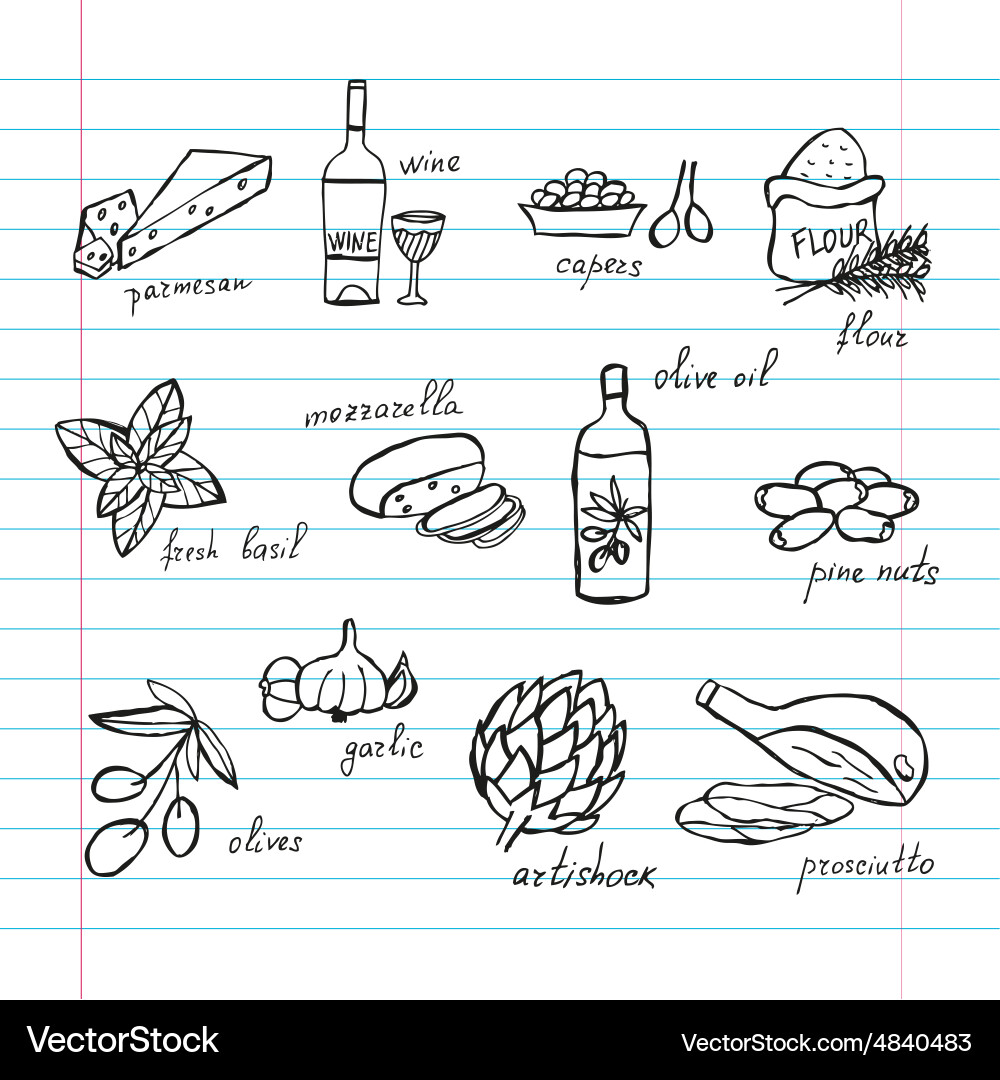 wine
WINE
parmesan
capers
FLOUR
flour
mozzarella
olive oil
fresh basil
pine nuts
garlic
olives
artishock
prosciutto
VectorStock
VectorStock.com/4840483